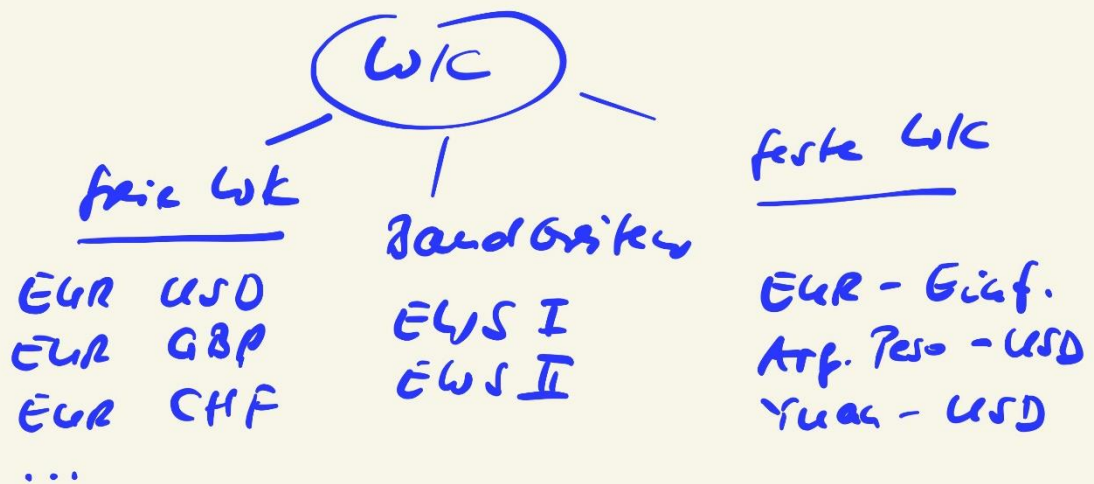 WK
freie WK
EUR USD
EUR GBP
EUR CHF
...
Bandbreiten
EWS I
EWS II
feste WK
EUR - Einf.
Arg. Peso - USD
Yuan - USD